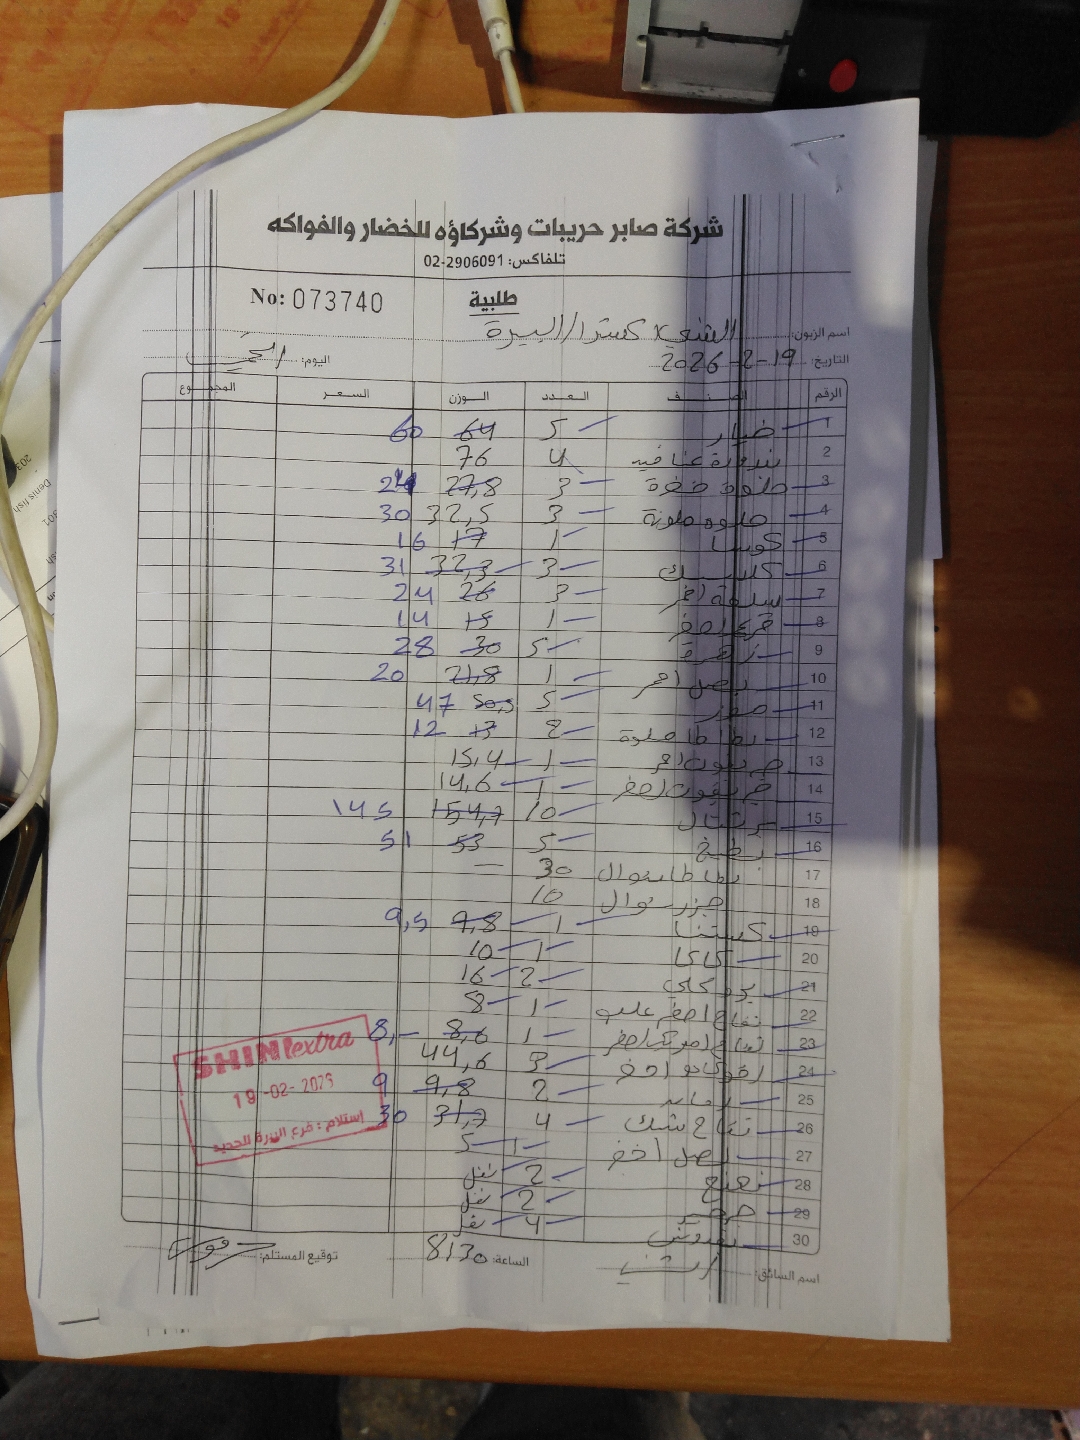 شركة صابر حريبات وشركاؤه للخضار والفواكه
تلفاكس: 02-2906091
No: 073740
طلبية
اسم الزبون: الشني اكسترا / البيرة
التاريخ: 19-2-2026
اليوم: الخميس
الرقم الصنف العدد الوزن السعر المجموع
1 خيار 5 64 60
2 بندورة عناقيد 4 76
3 حلوة خضرة 3 27,8 24
4 حلوه ملونة 3 32,5 30
5 كوسا 1 17 16
6 3 32,3 31
7 3 26 24
8 قرع اصفر 1 15 14
9 زهرة 5 30 28
10 بصل احمر 1 21,8 20
11 5 50,5 47
12 بطاطا حلوة 2 13 12
13 جريفوت احمر 1 15,4
14 جريفوت اصفر 1 14,6
15 برتقال 10 154,7 145
16 بطيخ 5 53 51
17 بطاطا شوال 30 —
18 جزر شوال 10
19 كستنا 1 9,8 9,5
20 كاكا 1 10
21 2 16
22 تفاح اصفر 1 8
23 تفاح اصفر 1 8,6 8,-
24 افوكادو اخضر 3 44,6
25 2 9,8 9
26 تفاح 4 31,7 30
27 بصل اخضر 1 5
28 نعنع 2
29 جرجير 2
30 بقدونس 4
SHINI extra
19-02-2026
إستلام : فرع البيرة الجديد
اسم السائق:
الساعة: 8:30
توقيع المستلم: